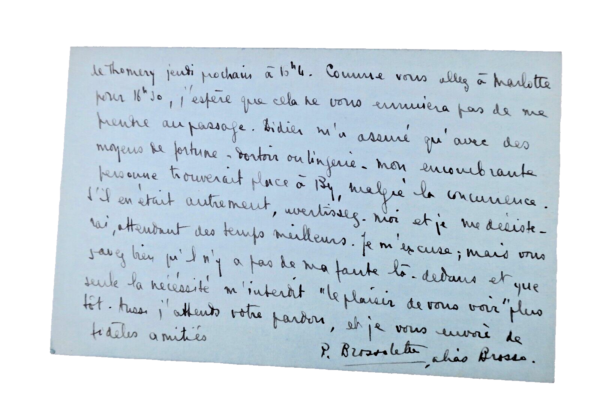 de Thomery jeudi prochain à 15h4. Comme vous allez à Marlotte
pour 16h30, j'espère que cela ne vous ennuiera pas de me
prendre au passage. Didier m'a assuré qu'avec des
moyens de fortune - dortoir ou lingerie - mon encombrante
personne trouverait place à By, malgré la concurrence.
S'il en était autrement, avertissez-moi et je me désiste-
rai, attendant des temps meilleurs. Je m'excuse ; mais vous
savez bien qu'il n'y a pas de ma faute là-dedans et que
seule la nécessité m'interdit "le plaisir de vous voir" plus
tôt. Aussi j'attends votre pardon, et je vous envoie de
fidèles amitiés
P. Brossolette, alias Brosso.